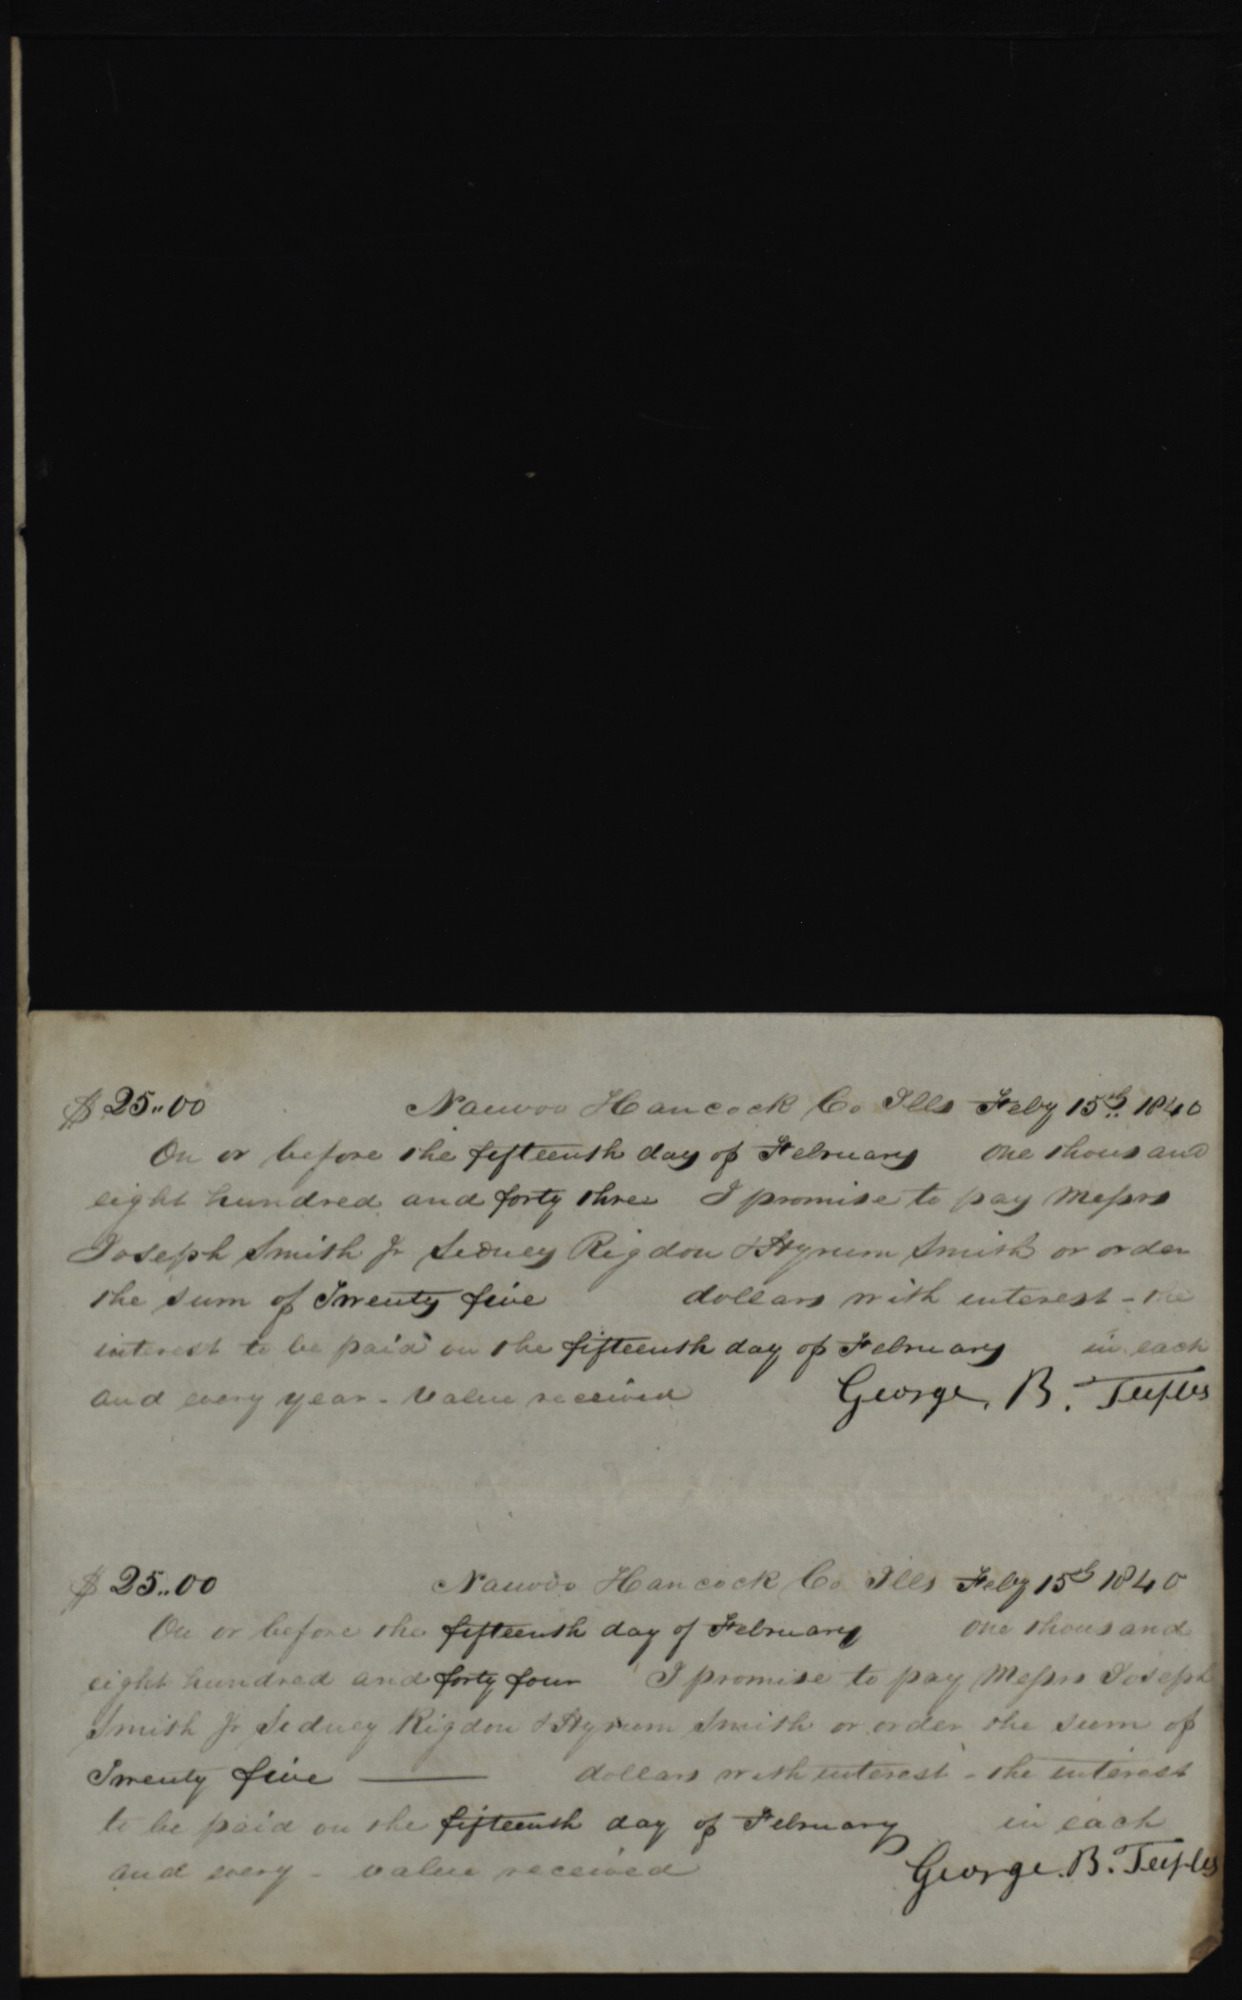 $25..00 Nauvoo Hancock Co Ills Feby 15th. 1840
On or before the fifteenth day of February one thousand
eight hundred and forty three I promise to pay Messrs
Joseph Smith Jr Sidney Rigdon & Hyrum Smith or order
the sum of Twenty five dollars with interest - the
interest to be paid on the fifteenth day of February in each
and every year - value received George. B. Teeples
$25..00 Nauvoo Hancock Co Ills Feby 15th 1840
On or before the fifteenth day of February one thousand
eight hundred and forty four I promise to pay Messrs Joseph
Smith Jr Sidney Rigdon & Hyrum Smith or order the sum of
Twenty five —— dollars with interest - the interest
to be paid on the fifteenth day of February in each
and every - value received George. B. Teeples